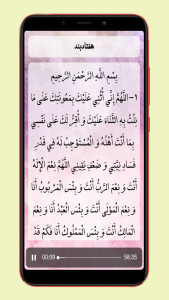 هفتادبند
بِسْمِ اللّٰهِ الرَّحْمَنِ الرَّحِيْمِ
١-اَللّٰهُمَّ إِنِّي أُثْنِي عَلَيْكَ بِمَعُوْنَتِكَ عَلَى مَا
نِلْتُ بِهِ الثَّنَاءَ عَلَيْكَ وَ أُقِرُّ لَكَ عَلَى نَفْسِي
بِمَا أَنْتَ أَهْلُهُ وَ الْمُسْتَوْجِبُ لَهُ فِي قَدْرِ
فَسَادِ نِيَّتِي وَ ضَعْفِ يَقِيْنِي اَللّٰهُمَّ نِعْمَ الْإِلٰهُ
أَنْتَ وَ نِعْمَ الرَّبُّ أَنْتَ وَ بِئْسَ الْمَرْبُوْبُ أَنَا
وَ نِعْمَ الْمَوْلَى أَنْتَ وَ بِئْسَ الْعَبْدُ أَنَا وَ نِعْمَ
الْمَالِكُ أَنْتَ وَ بِئْسَ الْمَمْلُوْكُ أَنَا فَكَمْ قَدْ
00:09 58:35